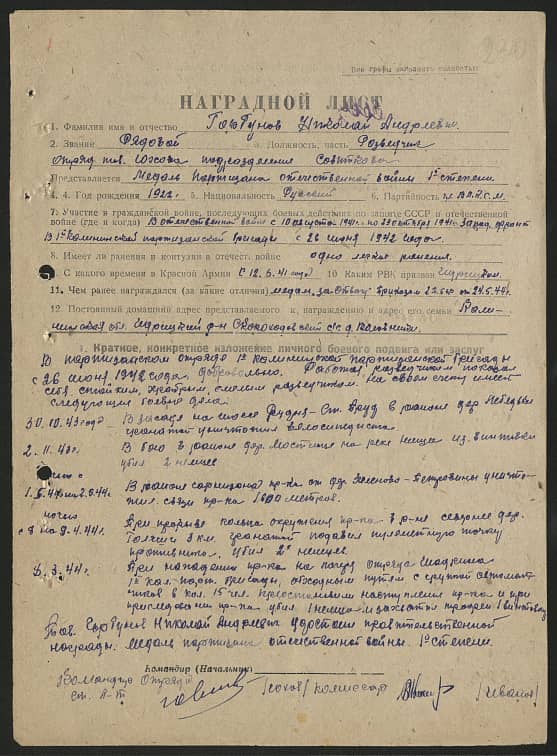 Все графы заполнять полностью
НАГРАДНОЙ ЛИСТ
1. Фамилия имя и отчество Горбунов Николай Андреевич.
2. Звание Рядовой 3. Должность, часть Разведчик
отряд тов. подразделения
Представляется Медаль Партизана отечественной войны 1 степени.
4. Год рождения 1922 г. 5. Национальность Русский 6. Партийность чл. ВЛКСМ.
7. Участие в гражданской войне, последующих боевых действиях по защите СССР и отечественной
войне (где и когда) В отечественной войне с 10 августа 1941 г. по 23 октября 1941 г. Запад. фронт
В 1й Калининской партизанской бригады с 26 июня 1942 года.
8. Имеет ли ранения и контузии в отечест. войне одно легкое ранение.
9. С какого времени в Красной Армии с 12.5.41 года 10 Каким РВК призван Идрицким.
11. Чем ранее награжден (за какие отличия) медал. за Отвагу приказом от 24.5.44 г.
12. Постоянный домашний адрес представляемого к награждению и адрес его семьи Кали-
нинская обл. Идрицкий р-н с/с д.
1. Краткое, конкретное изложение личного боевого подвига или заслуг
В партизанском отряде 1й Калининской Партизанской бригады
с 26 июня 1942 года добровольно. Работая разведчиком показал
себя стойким, храбрым, смелым разведчиком. На своем счету имеет
следующие боевые дела
30.10.43 года В засаде на шоссе - Ст. в районе дер. Лебедево
гранатой уничтожил велосипедиста.
2.11.43 г. В бою в районе дер. на реке Нища из винтовки
убил 2 немцев
В районе гарнизона пр-ка от дер. - уничто-
жил связи пр-ка 1600 метров.
ночью
с 8 на 9.4.44 г. При прорыве кольца окружения пр-ка в р-не севернее дер.
3 км. гранатой подавил пулеметную точку
противника. убил 2х немцев.
3.44 г. При нападении пр-ка на лагерь отряда
1й Кал. парт. бригады, обходным путем с группой автомат-
чиков в кол. 15 чел. приостановили наступление пр-ка и при
преследовании пр-ка убил 1 немца и захватил трофеи 1 винтовку
Тов. Горбунов Николай Андреевич удостоен правительственной
награды. медаль партизана отечественной войны. 1й степени.
Командир (Начальник)
Командир Отряда
ст. л-т /комиссар /Иванов/